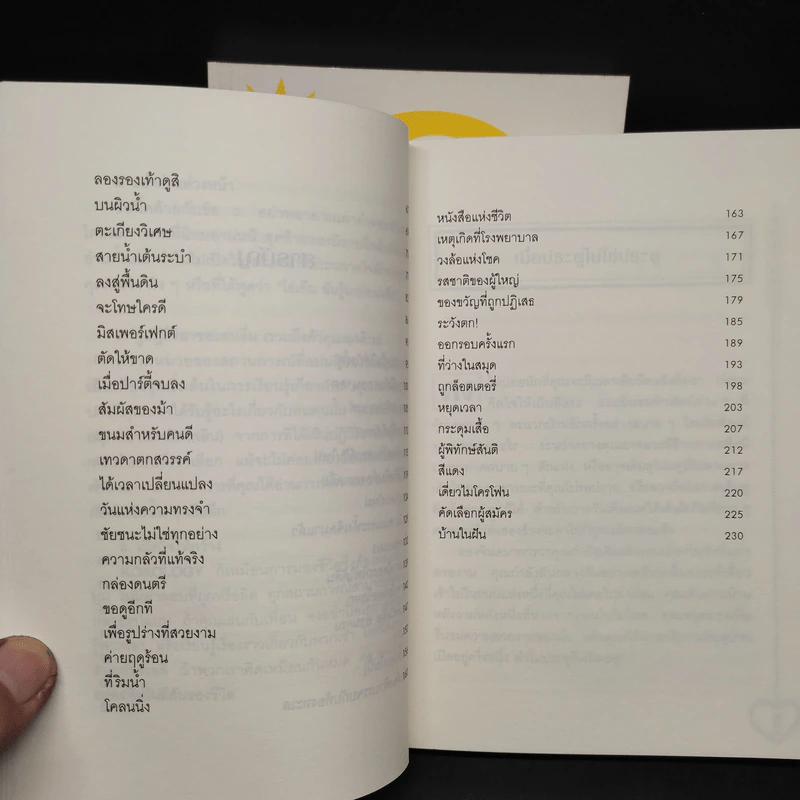 ลองรองเท้าดูสิ
บนผิวน้ำ
ตะเกียงวิเศษ
สายน้ำเต้นระบำ
ลงสู่พื้นดิน
จะโทษใครดี
มิสเพอร์เฟกต์
ตัดให้ขาด
เมื่อปาร์ตี้จบลง
สัมผัสของม้า
ขนมสำหรับคนดี
เทวดาตกสวรรค์
ได้เวลาเปลี่ยนแปลง
วันแห่งความทรงจำ
ชัยชนะไม่ใช่ทุกอย่าง
ความกลัวที่แท้จริง
กล่องดนตรี
ขอดูอีกที
เพื่อรูปร่างที่สวยงาม
ค่ายฤดูร้อน
ที่ริมน้ำ
โคลนนิ่ง
หนังสือแห่งชีวิต 163
เหตุเกิดที่โรงพยาบาล 167
วงล้อแห่งโชค 171
รสชาติของผู้ใหญ่ 175
ของขวัญที่ถูกปฏิเสธ 179
ระวังตก! 185
ออกรอบครั้งแรก 189
ที่ว่างในสมุด 193
ถูกล็อตเตอรี่ 198
หยุดเวลา 203
กระดุมเสื้อ 207
ผู้พิทักษ์สันติ 212
สีแดง 217
เดี่ยวไมโครโฟน 220
คัดเลือกผู้สมัคร 225
บ้านในฝัน 230